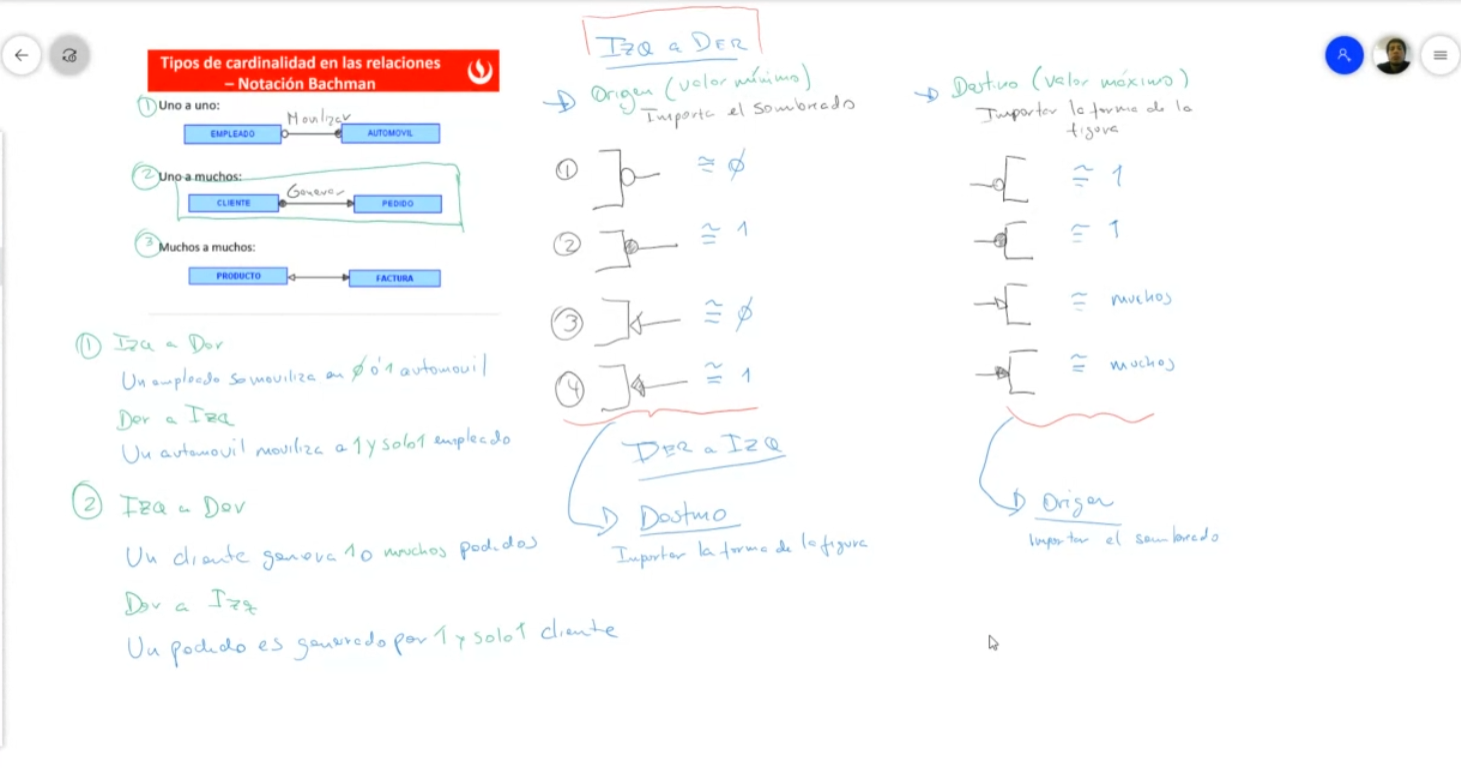 Tipos de cardinalidad en las relaciones
– Notación Bachman
① Uno a uno:
Movilizar
EMPLEADO
AUTOMOVIL
② Uno a muchos:
Generar
CLIENTE
PEDIDO
③ Muchos a muchos:
PRODUCTO
FACTURA
① Izq a Der
Un empleado se moviliza en ∅ ó 1 automovil
Der a Izq
Un automovil moviliza a 1 y solo 1 empleado
② Izq a Der
Un cliente genera 1 o muchos pedidos
Der a Izq
Un pedido es generado por 1 y solo 1 cliente
IZQ a DER
Origen (valor mínimo)
Importa el sombreado
① ≅ ∅
② ≅ 1
③ ≅ ∅
④ ≅ 1
DER a IZQ
Destino
Importar la forma de la figura
Destino (valor máximo)
Importar la forma de la
figura
≅ 1
≅ 1
≅ muchos
≅ muchos
Origen
importar el sombreado